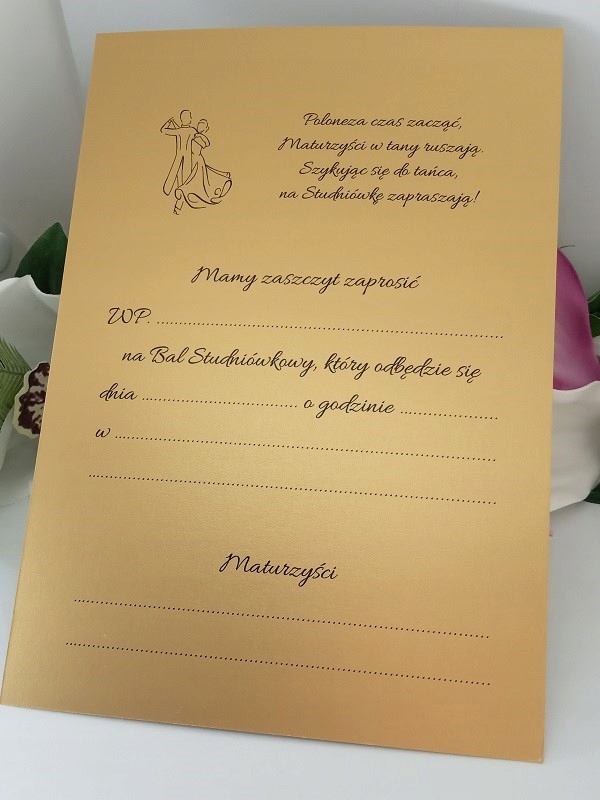 Poloneza czas zacząć,
Maturzyści w tany ruszają.
Szykując się do tańca,
na Studniówkę zapraszają!
Mamy zaszczyt zaprosić
WP. ........................................................................
na Bal Studniówkowy, który odbędzie się
dnia ................................. o godzinie .....................
w ................................................................................
.....................................................................................
Maturzyści
.....................................................................................
.....................................................................................